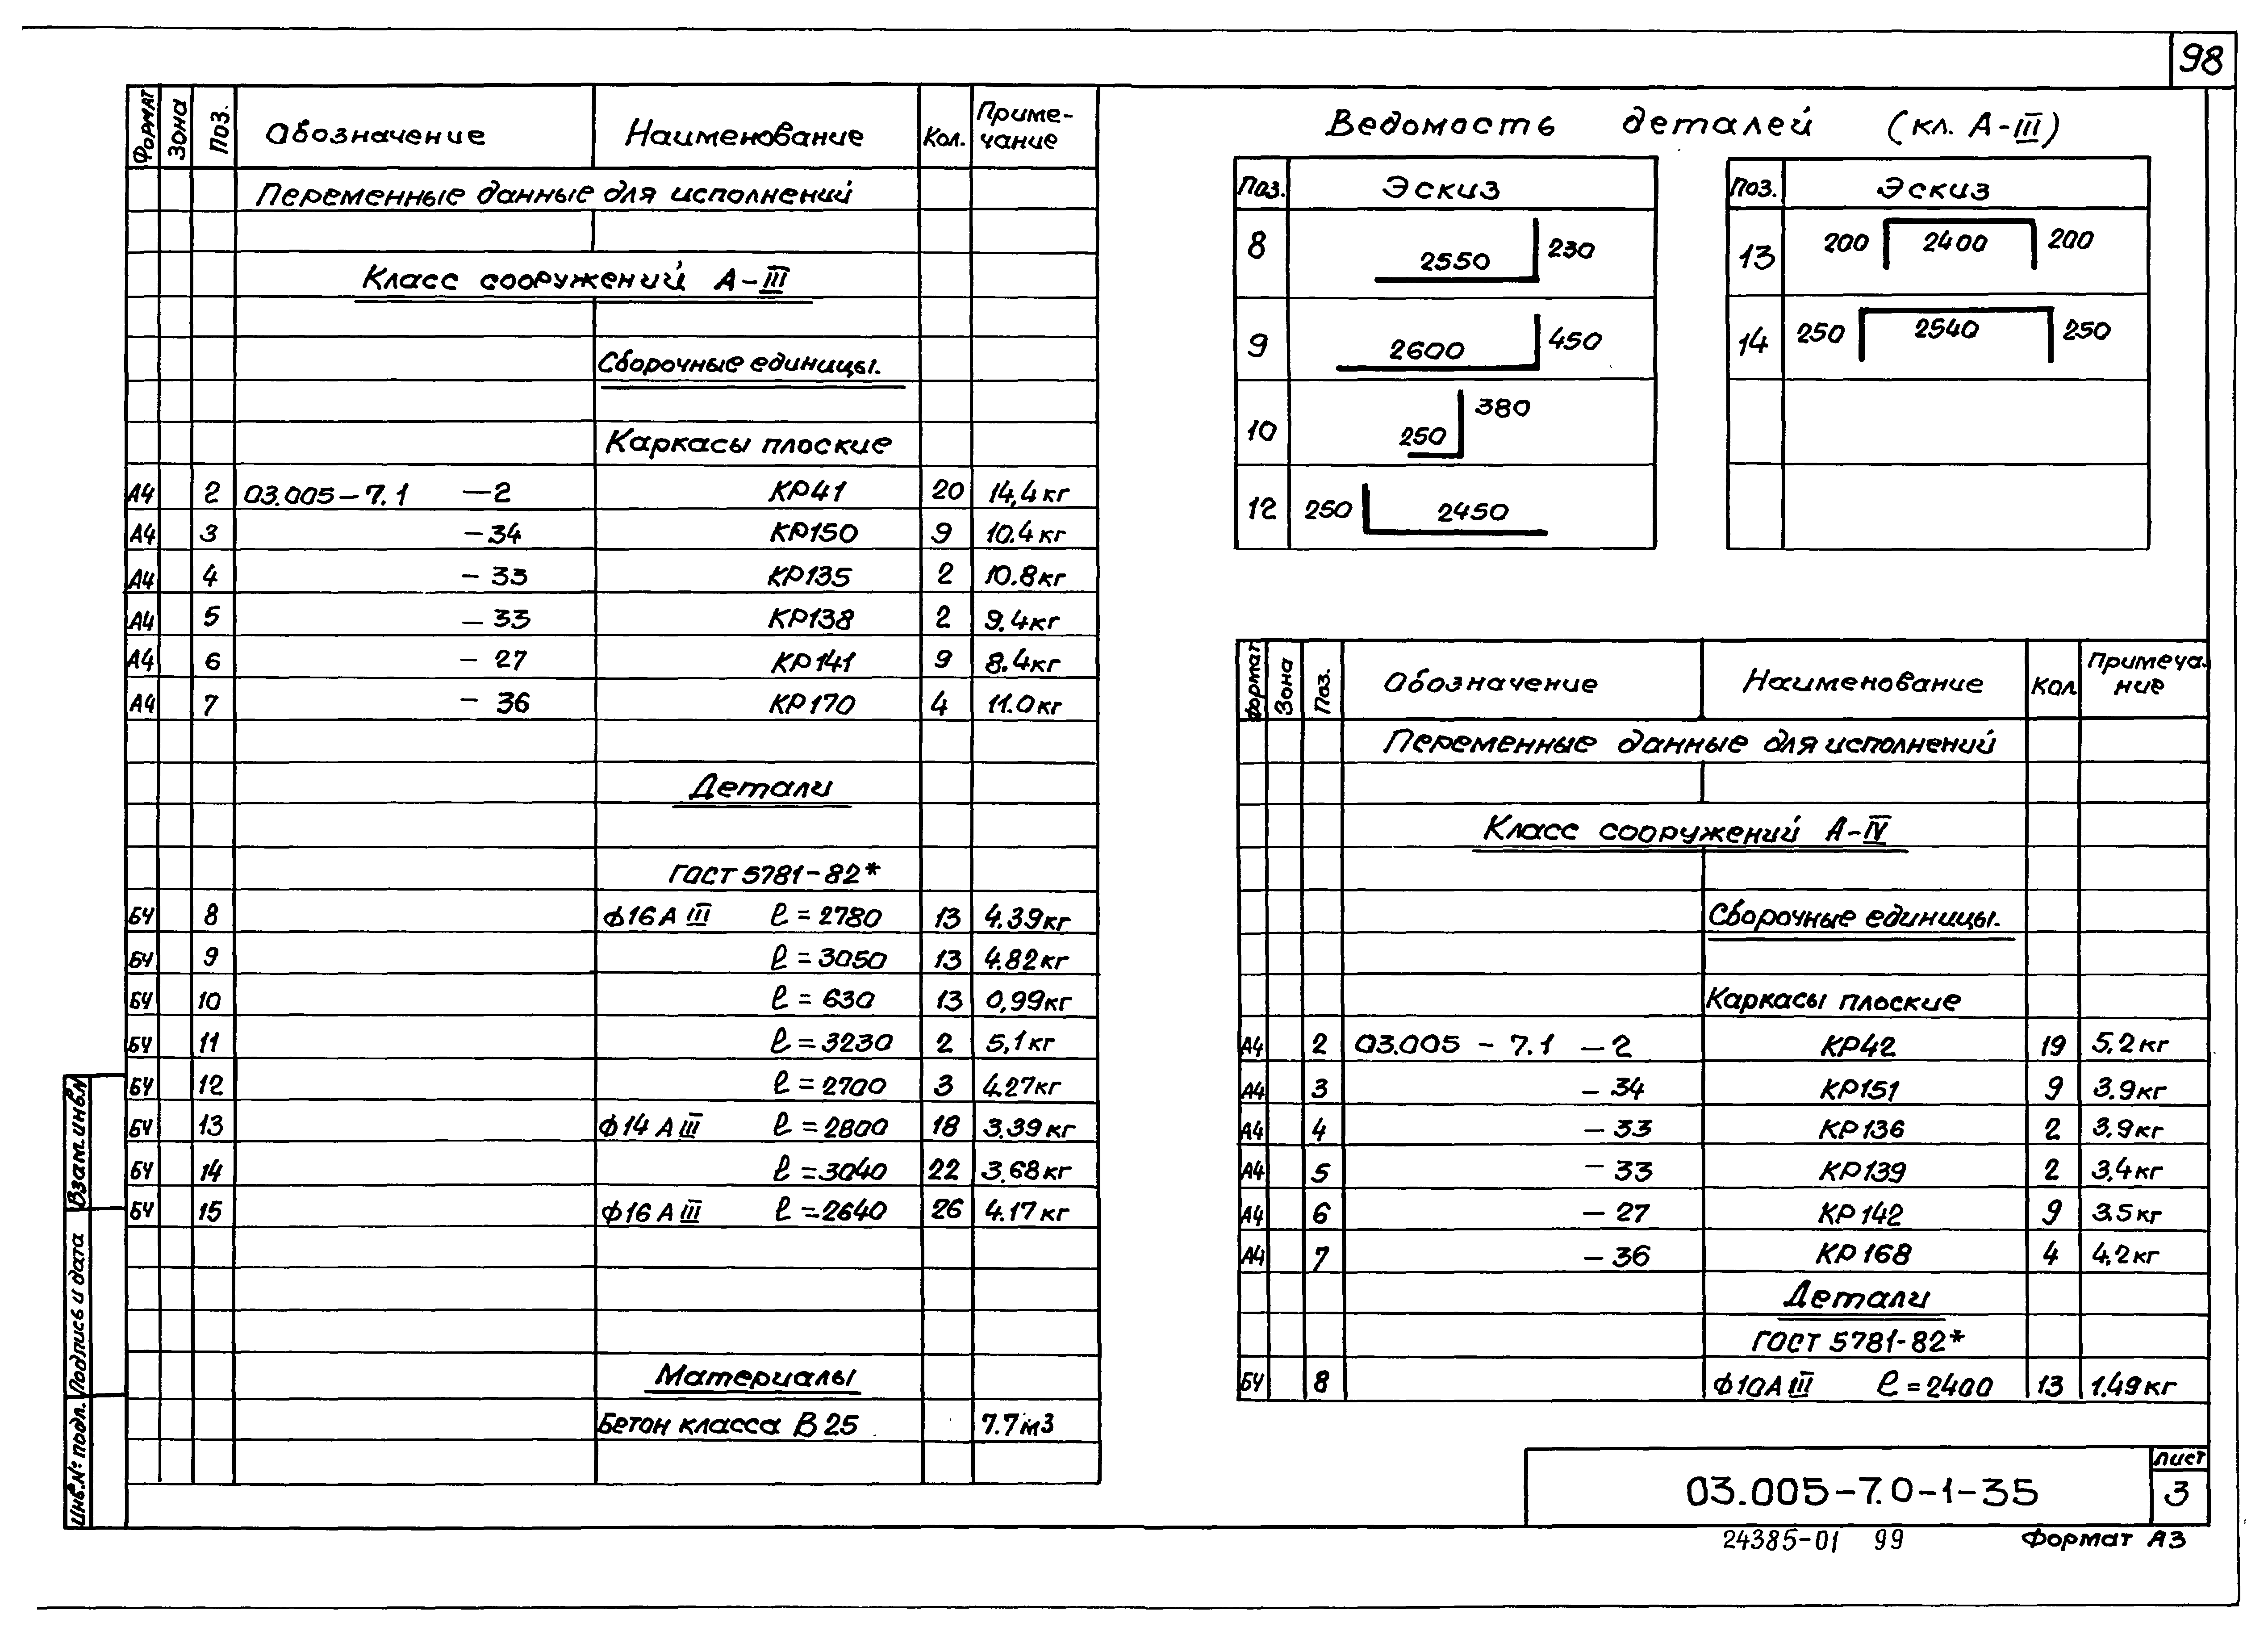 98
Формат Зона Поз. Обозначение Наименование Кол. Приме-
чание
Переменные данные для исполнений
Класс сооружений А-III
Сборочные единицы.
Каркасы плоские
А4 2 03.005-7.1 -2 КР41 20 14,4кг
А4 3 -34 КР150 9 10.4кг
А4 4 -33 КР135 2 10.8кг
А4 5 -33 КР138 2 9.4кг
А4 6 -27 КР141 9 8.4кг
А4 7 -36 КР170 4 11.0кг
Детали
ГОСТ 5781-82*
БЧ 8 ф16АIII ℓ=2780 13 4.39кг
БЧ 9 ℓ=3050 13 4.82кг
БЧ 10 ℓ=630 13 0,99кг
БЧ 11 ℓ=3230 2 5,1кг
БЧ 12 ℓ=2700 3 4.27кг
БЧ 13 ф14АIII ℓ=2800 18 3.39кг
БЧ 14 ℓ=3040 22 3.68кг
БЧ 15 ф16АIII ℓ=2640 26 4.17кг
Материалы
Бетон класса В25 7.7м3
Ведомость деталей (кл. А-III)
Поз. Эскиз
8 2550 230
9 2600 450
10 250 380
12 250 2450
Поз. Эскиз
13 200 2400 200
14 250 2540 250
Формат Зона Поз. Обозначение Наименование Кол Примеча-
ние
Переменные данные для исполнений
Класс сооружений А-IV
Сборочные единицы.
Каркасы плоские
А4 2 03.005-7.1 -2 КР42 19 5,2кг
А4 3 -34 КР151 9 3.9кг
А4 4 -33 КР136 2 3,9кг
А4 5 -33 КР139 2 3,4кг
А4 6 -27 КР142 9 3.5кг
А4 7 -36 КР168 4 4,2кг
Детали
ГОСТ 5781-82*
БЧ 8 ф10АIII ℓ=2400 13 1.49кг
Взам.инв.N
Подпись и дата
Инв.№ подл.
03.005-7.0-1-35
Лист
3
24385-01 99
Формат А3